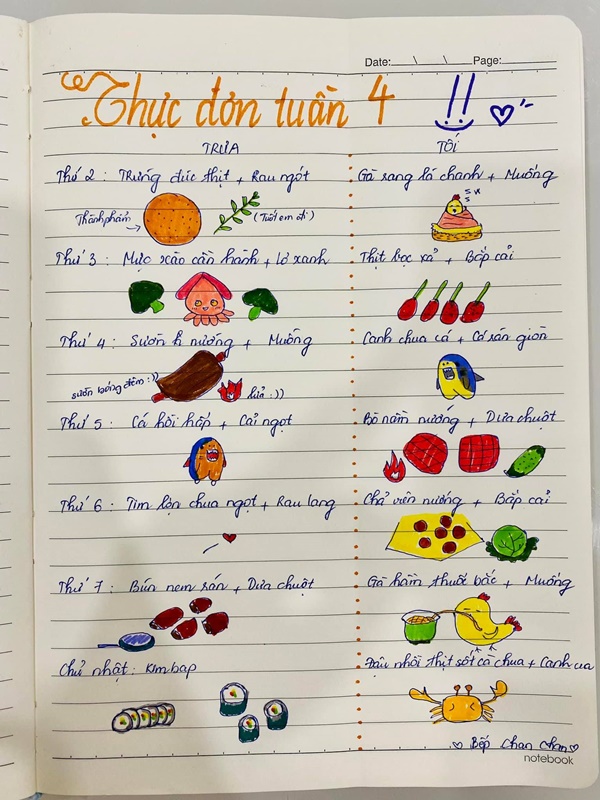 Date: \ \ Page:
Thực đơn tuần 4 !!
TRƯA TỐI
Thứ 2 : Trứng đúc thịt + Rau ngót Gà rang lá chanh + Muống
Thành phẩm (Tươi em ơi)
Thứ 3 : Mực xào cần hành + Lơ xanh Thịt bọc xả + Bắp cải
Thứ 4 : Sườn h nướng + Muống Canh chua cá + Cá rán giòn
sườn bóng đêm :)) lửa :))
Thứ 5 : Cá hồi hấp + Cải ngọt Bò nầm nướng + Dưa chuột
Thứ 6 : Tim lợn chua ngọt + Rau lang Chả viên nướng + Bắp cải
Thứ 7 : Bún nem rán + Dưa chuột Gà hầm thuốc bắc + Muống
Chủ nhật : Kimbap Đậu nhồi thịt sốt cà chua + Canh cua
Bếp Chan Chan
notebook